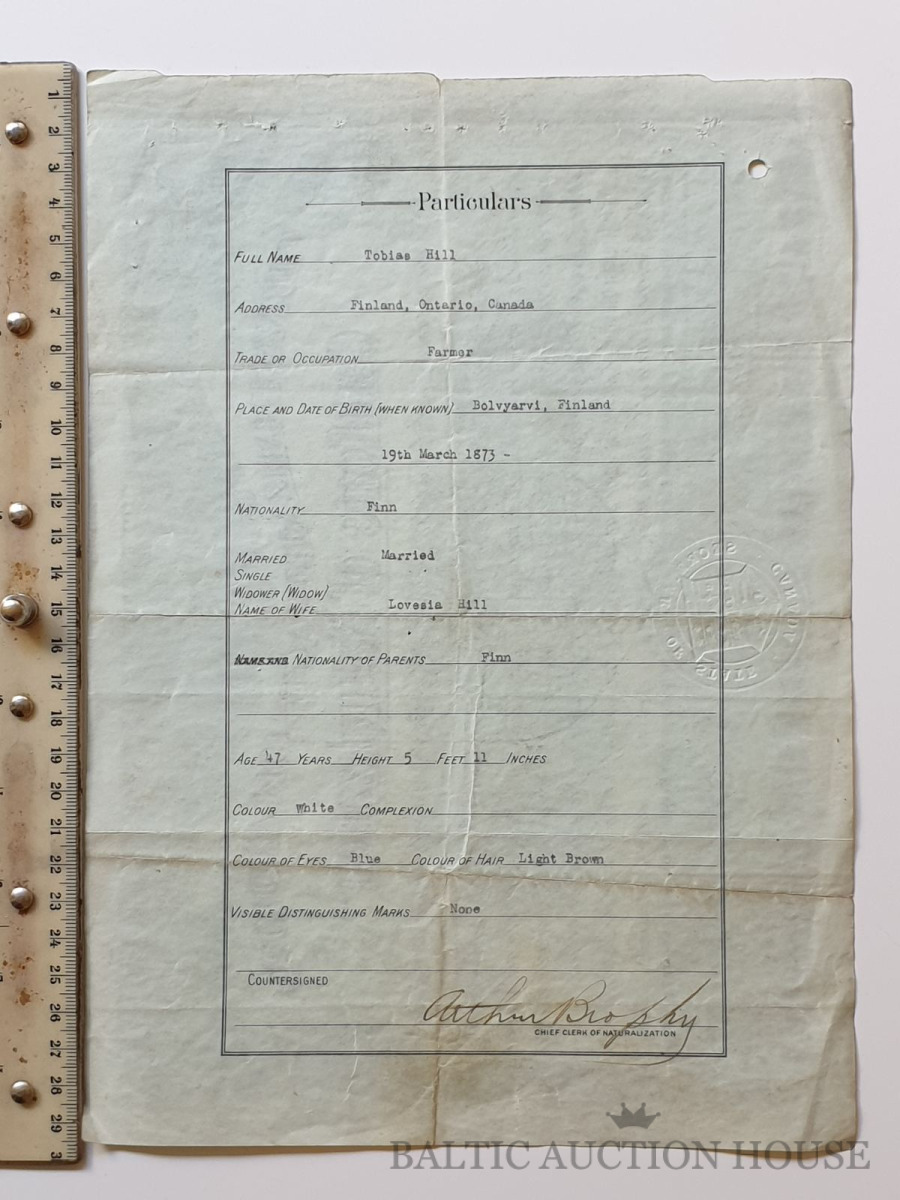 Particulars
FULL NAME Tobias Hill
ADDRESS Finland, Ontario, Canada
TRADE OR OCCUPATION Farmer
PLACE AND DATE OF BIRTH (WHEN KNOWN) Bolvyarvi, Finland
19th March 1873 -
NATIONALITY Finn
MARRIED Married
SINGLE
WIDOWER (WIDOW)
NAME OF WIFE Lovesia Hill
NAME AND NATIONALITY OF PARENTS Finn
AGE 47 YEARS HEIGHT 5 FEET 11 INCHES
COLOUR White COMPLEXION
COLOUR OF EYES Blue COLOUR OF HAIR Light Brown
VISIBLE DISTINGUISHING MARKS None
COUNTERSIGNED
Arthur Brophy
CHIEF CLERK OF NATURALIZATION
OF STATE
BALTIC AUCTION HOUSE
1
2
3
4
5
6
7
8
9
10
11
12
13
14
15
16
17
18
19
20
21
22
23
24
25
26
27
28
29